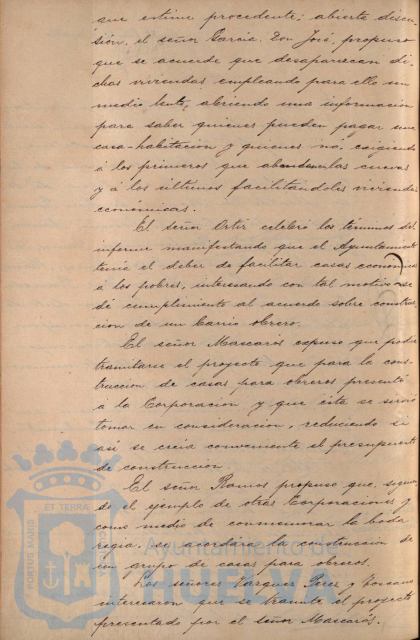 que estime procedente; abierta discu-
sión, el señor García, Don José, propuso
que se acuerde que desaparezcan di-
chas viviendas empleando para ello un
medio lento, abriendo una información
para saber quienes pueden pagar una
casa-habitación y quienes no, exigiendo
á los primeros que abandonen las cuevas
y á los últimos facilitandoles viviendas
económicas.
El señor Ortiz celebró los términos del
informe manifestando que el Ayuntamiento
tenia el deber de facilitar casas económicas
á los pobres, interesando con tal motivo se
dé cumplimiento al acuerdo sobre construc-
cion de un barrio obrero.
El señor Mascarós expuso que podia
tramitarse el proyecto que para la cons-
trucción de casas para obreros presentó
á la Corporación y que ésta se sirvió
tomar en consideración, reduciendo si
así se creia conveniente el presupuesto
de construcción.
El señor Ramos propuso que, siguien-
do el ejemplo de otras Corporaciones y
como medio de conmemorar la boda
regia, se acordára la construcción de
un grupo de casas para obreros.
Los señores Vazquez Perez y
interesaron que se tramite el proyecto
presentado por el señor Mascarós.
PORTUS MARIS
ET TERRÆ
Ayuntamiento de
HUELVA